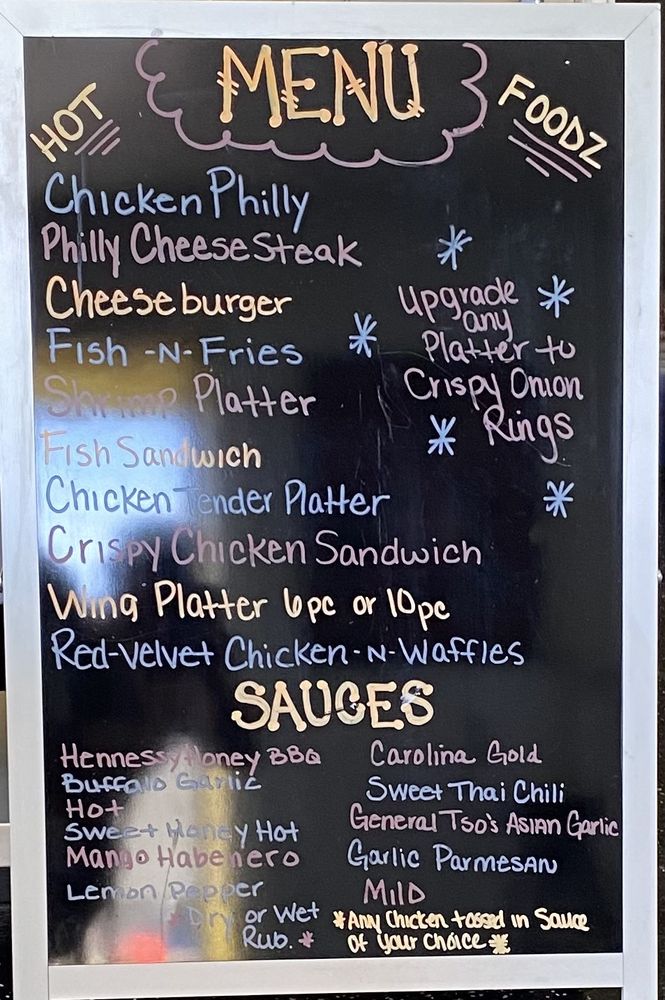 HOT MENU FOODZ
Chicken Philly
Philly CheeseSteak
Cheeseburger
Fish -N- Fries
Shrimp Platter
Fish Sandwich
Chicken Tender Platter
Crispy Chicken Sandwich
Wing Platter 6pc or 10pc
Red-Velvet Chicken-N-Waffles
* Upgrade *
any
* Platter to
Crispy Onion
* Rings
*
SAUCES
Hennessy Honey BBQ
Buffalo Garlic
Hot
Sweet Honey Hot
Mango Habenero
Lemon Pepper
*Dry or Wet
Rub.*
Carolina Gold
Sweet Thai Chili
General Tso's Asian Garlic
Garlic Parmesan
Mild
*Any Chicken tossed in Sauce
of your choice*